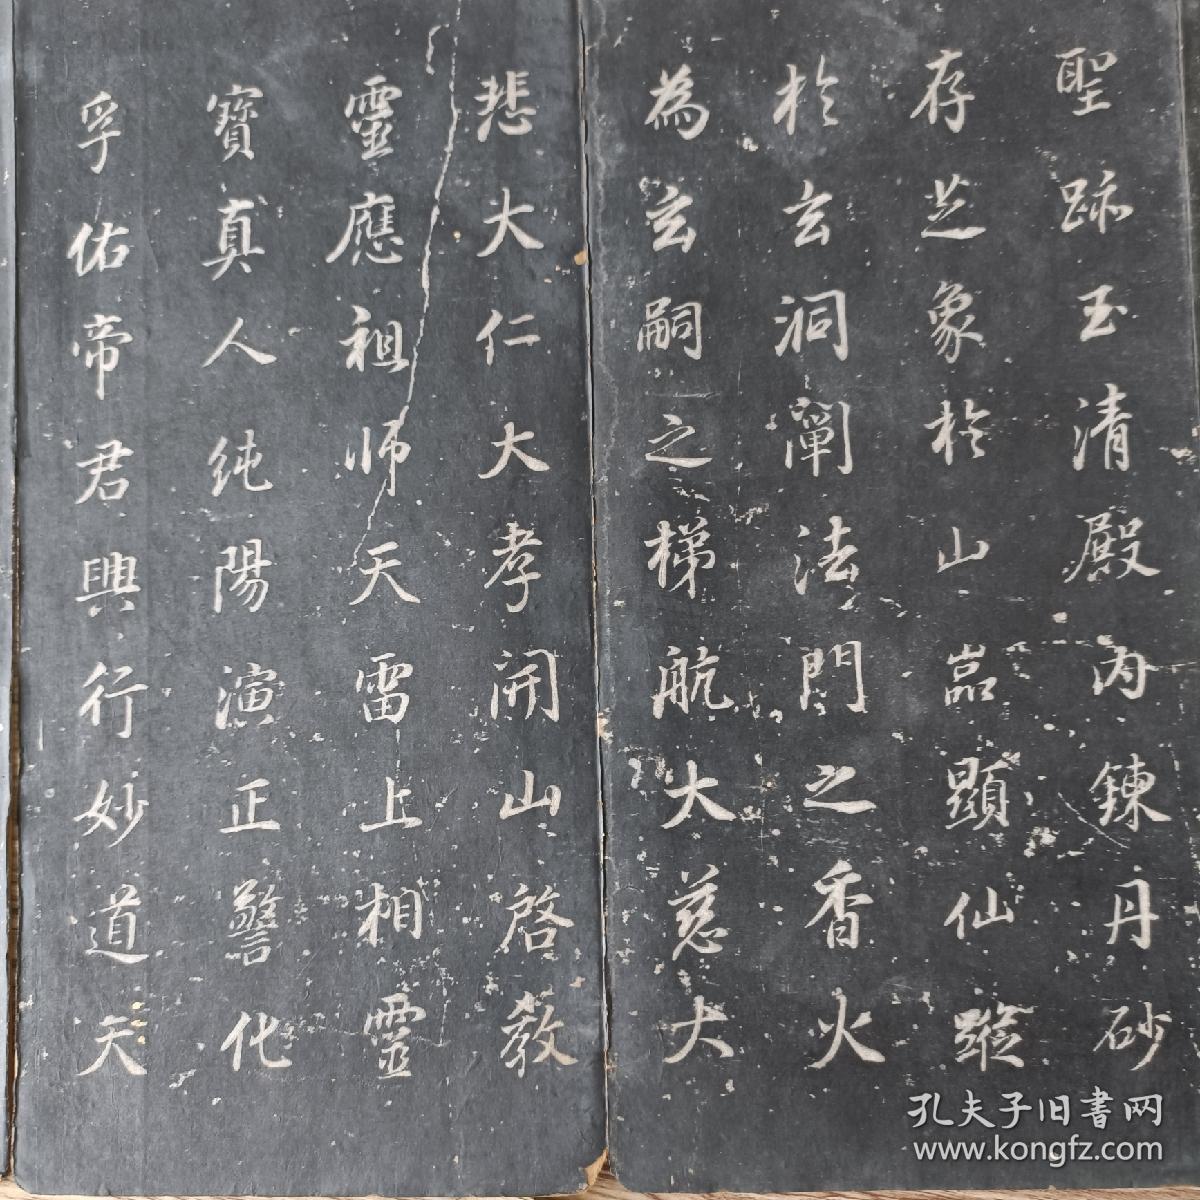 聖跡玉清殿內鍊丹砂
存芝象於山嵓顯仙蹤
於玄洞闡法門之香火
為玄嗣之梯航大慈大
悲大仁大孝開山啓教
靈應祖師天雷上相靈
寳真人純陽演正警化
孚佑帝君興行妙道天
孔夫子旧書网
www.kongfz.com